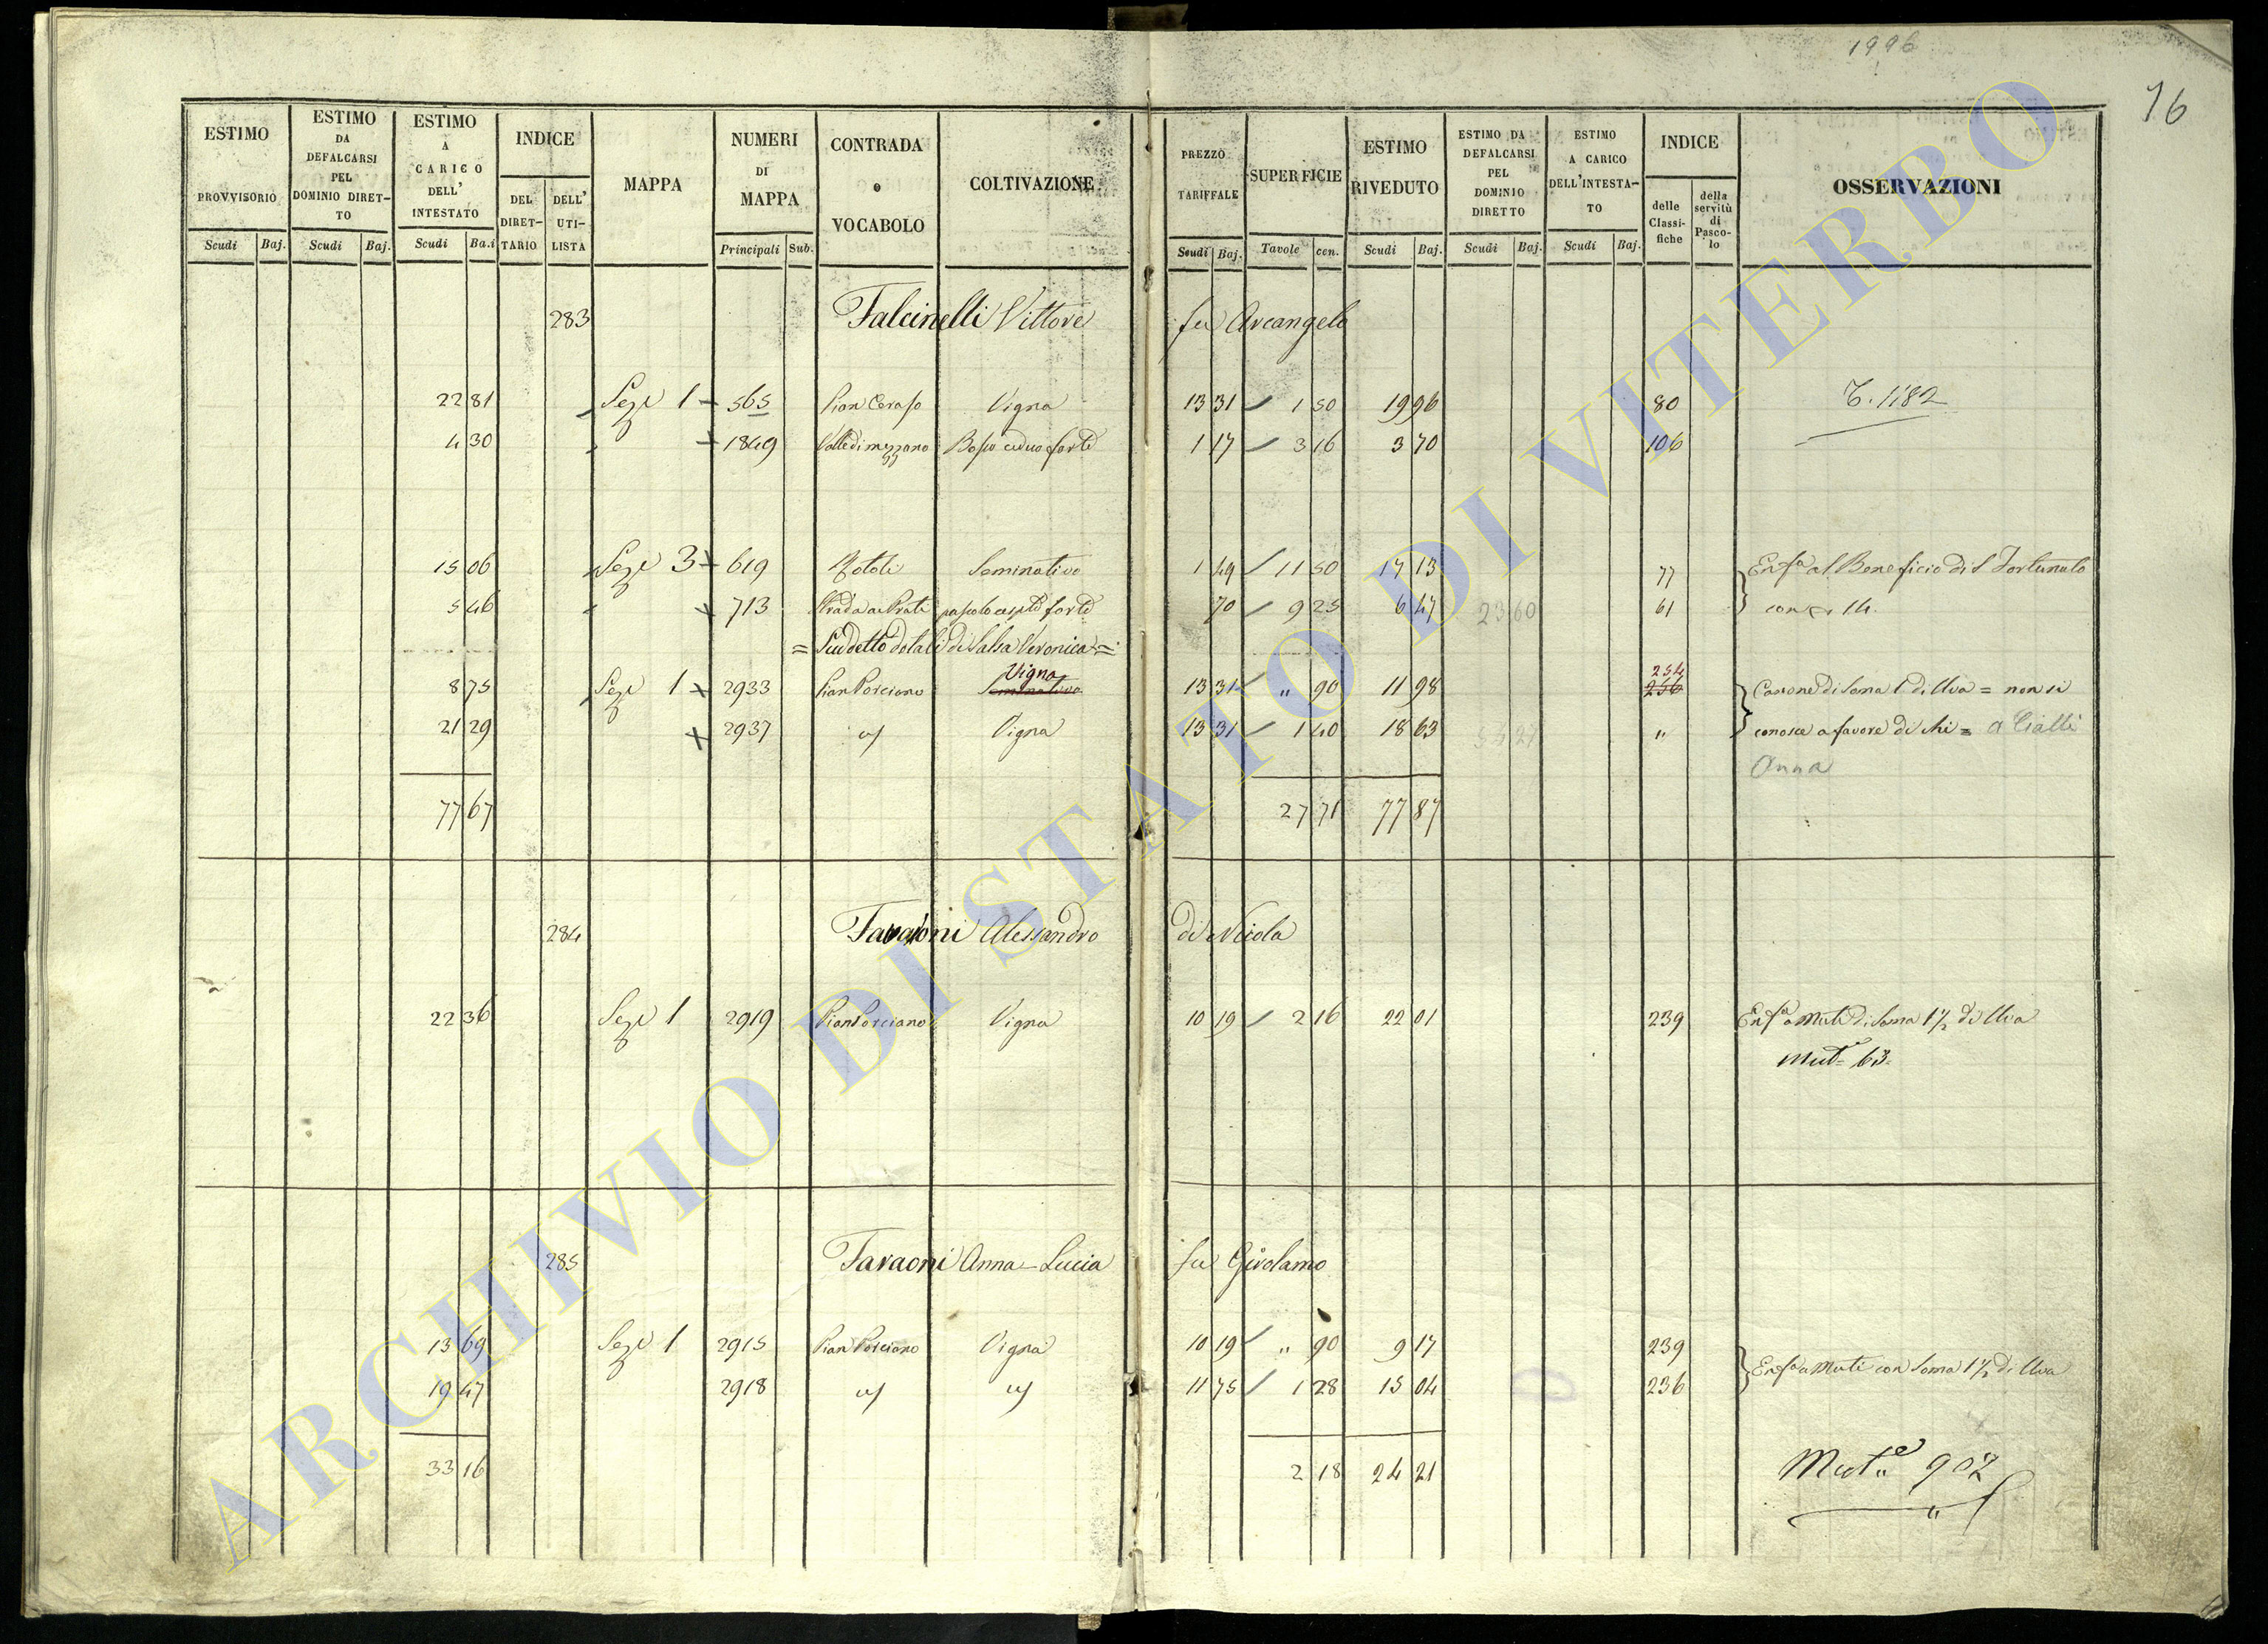 1996
76
ESTIMO PROVVISORIO
ESTIMO DA DEFALCARSI PEL DOMINIO DIRETTO
ESTIMO A CARICO DELL' INTESTATO
INDICE
DEL DIRETTARIO
DELL' UTILISTA
MAPPA
NUMERI DI MAPPA
CONTRADA o VOCABOLO
COLTIVAZIONE
PREZZO TARIFFALE
SUPERFICIE
ESTIMO RIVEDUTO
ESTIMO DA DEFALCARSI PEL DOMINIO DIRETTO
ESTIMO A CARICO DELL'INTESTATO
INDICE
delle Classifiche
della servitù di Pascolo
OSSERVAZIONI
Scudi Baj. Scudi Baj. Scudi Ba.i Principali Sub. Scudi Baj. Tavole cen. Scudi Baj. Scudi Baj. Scudi Baj.
283 Falcinelli Vittore fu Arcangelo
22 81 Seze 1 565 Pian Ceraso Vigna 13 31 1 50 19 96 80 T. 1182
4 30 1849 Valle di mezzano Bosco ceduo forte 1 17 3 16 3 70 106
15 06 Seze 3 619 Seminativo 1 49 11 50 17 13 77 Enfa al Beneficio di S Fortunato
5 46 713 Strada ai Prati pascolo cespto forte 70 9 25 6 47 23 60 61 con 14.
= Suddetto dotali di Salsa Veronica =
8 75 Seze 1 2933 Pian Porciano Seminativo Vigna 13 31 " 90 11 98 236 254 Canone di Soma 1 di Uva = non si
21 29 2937 Vigna 13 31 1 40 18 63 " conosce a favore di chi = a Cialli
Anna
77 67 27 71 77 87
284 Faraoni Alessandro di Nicola
22 36 Seze 1 2919 Pian Porciano Vigna 10 19 2 16 22 01 239 Enfa a Muti di Soma 1 1/2 di Uva
Mut= 63.
285 Faraoni Anna-Lucia fu Girolamo
13 69 Seze 1 2915 Pian Porciano Vigna 10 19 " 90 9 17 239 Enfa a Muti con Soma 1 1/2 di Uva
19 47 2918 11 75 1 28 15 04 236
33 16 2 18 24 21
Mut.e 902
ARCHIVIO DI STATO DI VITERBO